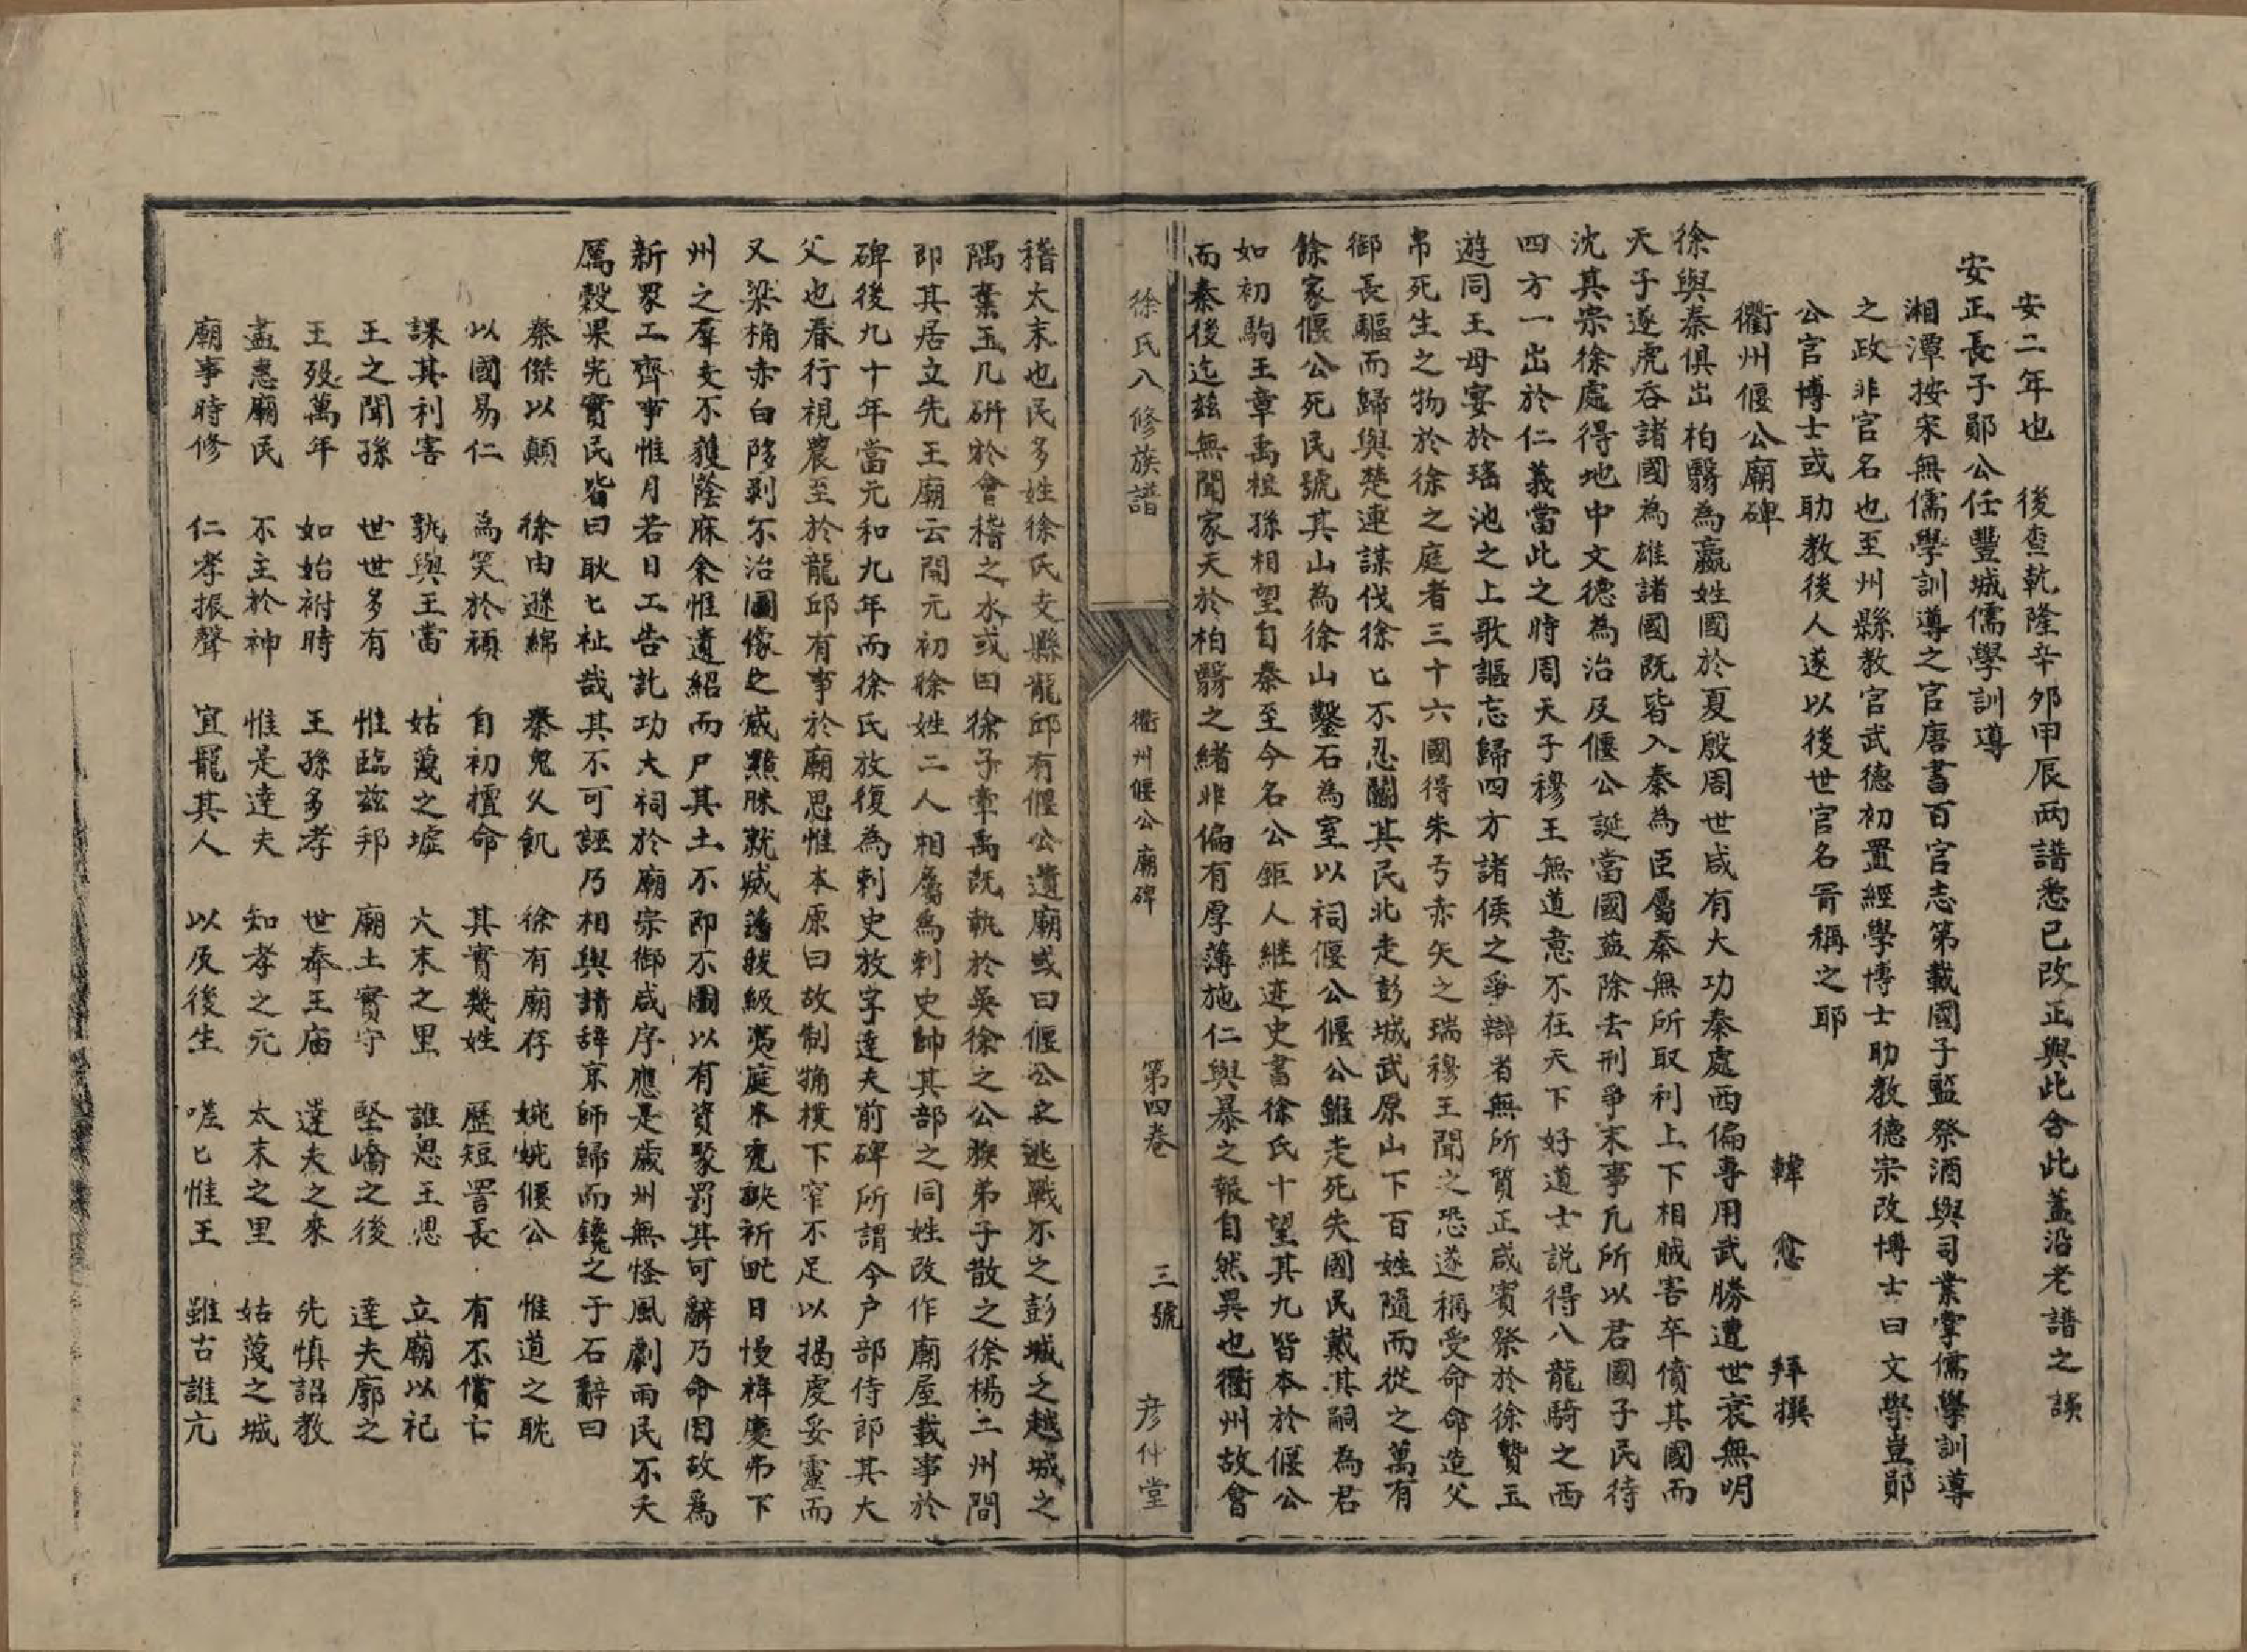 安二年也　後查乾隆辛夘甲辰两譜悉已改正與此合此蓋沿老譜之誤
安正長子鄖公任豐城儒學訓導
湘潭按宋無儒學訓導之官唐書百官志第載國子監祭酒與司業掌儒學訓導
之政非官名也至州縣教官武德初置經學博士助教德宗改博士曰文學豈鄖
公官博士或助教後人遂以後世官名胥稱之耶
衢州偃公廟碑　韓愈　拜撰
徐與秦俱出柏翳為嬴姓國於夏殷周世咸有大功秦處西偏專用武勝遭世衰無明
天子遂虎吞諸國為雄諸國既皆入秦為臣屬秦無所取利上下相賊害卒僨其國而
沈其宗徐處得地中文德為治及偃公誕當國益除去刑爭末事凢所以君國子民待
四方一出於仁義當此之時周天子穆王無道意不在天下好道士説得八龍騎之西
遊同王母宴於瑤池之上歌謳忘歸四方諸侯之爭辯者無所質正咸賓祭於徐贄玉
帛死生之物於徐之庭者三十六國得朱弓赤矢之瑞穆王聞之恐遂稱受命命造父
御長驅而歸與楚連謀伐徐匕不忍鬭其民北走彭城武原山下百姓隨而從之萬有
餘家偃公死民號其山為徐山鑿石為室以祠偃公偃公雖走死失國民戴其嗣為君
如初駒王章禹祖孫相望自秦至今名公鉅人継迹史書徐氏十望其九皆本於偃公
而秦後迄茲無聞家天於柏翳之緒非偏有厚薄施仁與暴之報自然異也衢州故會
徐氏八修族譜　衢州偃公廟碑　第四卷　三號　彦什堂
稽太末也民多姓徐氏支縣龍邱有偃公遺廟或曰偃公之逃戰不之彭城之越城之
隅棄玉几研於會稽之水或曰徐子章禹既執於吳徐之公族弟子散之徐楊二州間
即其居立先王廟云開元初徐姓二人相屬爲刺史帥其部之同姓改作廟屋載事於
碑後九十年當元和九年而徐氏放復為刺史放字達夫前碑所謂今户部侍郎其大
父也春行視農至於龍邱有事於廟思惟本原曰故制觕樸下窄不足以揭虔妥靈而
又梁桷赤白陊剥不治圖像之威黮昧就滅藩拔級夷庭木禿缺祈甿日慢祥慶弗下
州之羣支不獲蔭庥余惟遺紹而尸其土不即不圖以有資聚罰其可辭乃命因故爲
新眾工齊事惟月若日工告訖功大祠於廟宗御咸序應是歲州無怪風劇雨民不夭
厲穀果完實民皆曰耿匕祉哉其不可誣乃相與請辞京師歸而鑱之于石辭曰
秦傑以顛　徐由遜綿　秦鬼久飢　徐有廟存　婉婉偃公　惟道之耽
以國易仁　為笑於頑　自初擅命　其實幾姓　歷短詈長　有不償亡
課其利害　孰與王當　姑蔑之墟　大末之里　誰思王恩　立廟以祀
王之聞孫　世世多有　惟臨茲邦　廟土實守　堅嶠之後　達夫廓之
王殁萬年　如始祔時　王孫多孝　世奉王庙　達夫之來　先慎詔教
盡惠廟民　不主於神　惟是達夫　知孝之元　太末之里　姑蔑之城
廟事時修　仁孝振聲　宜寵其人　以及後生　嗟匕惟王　雖古誰亢